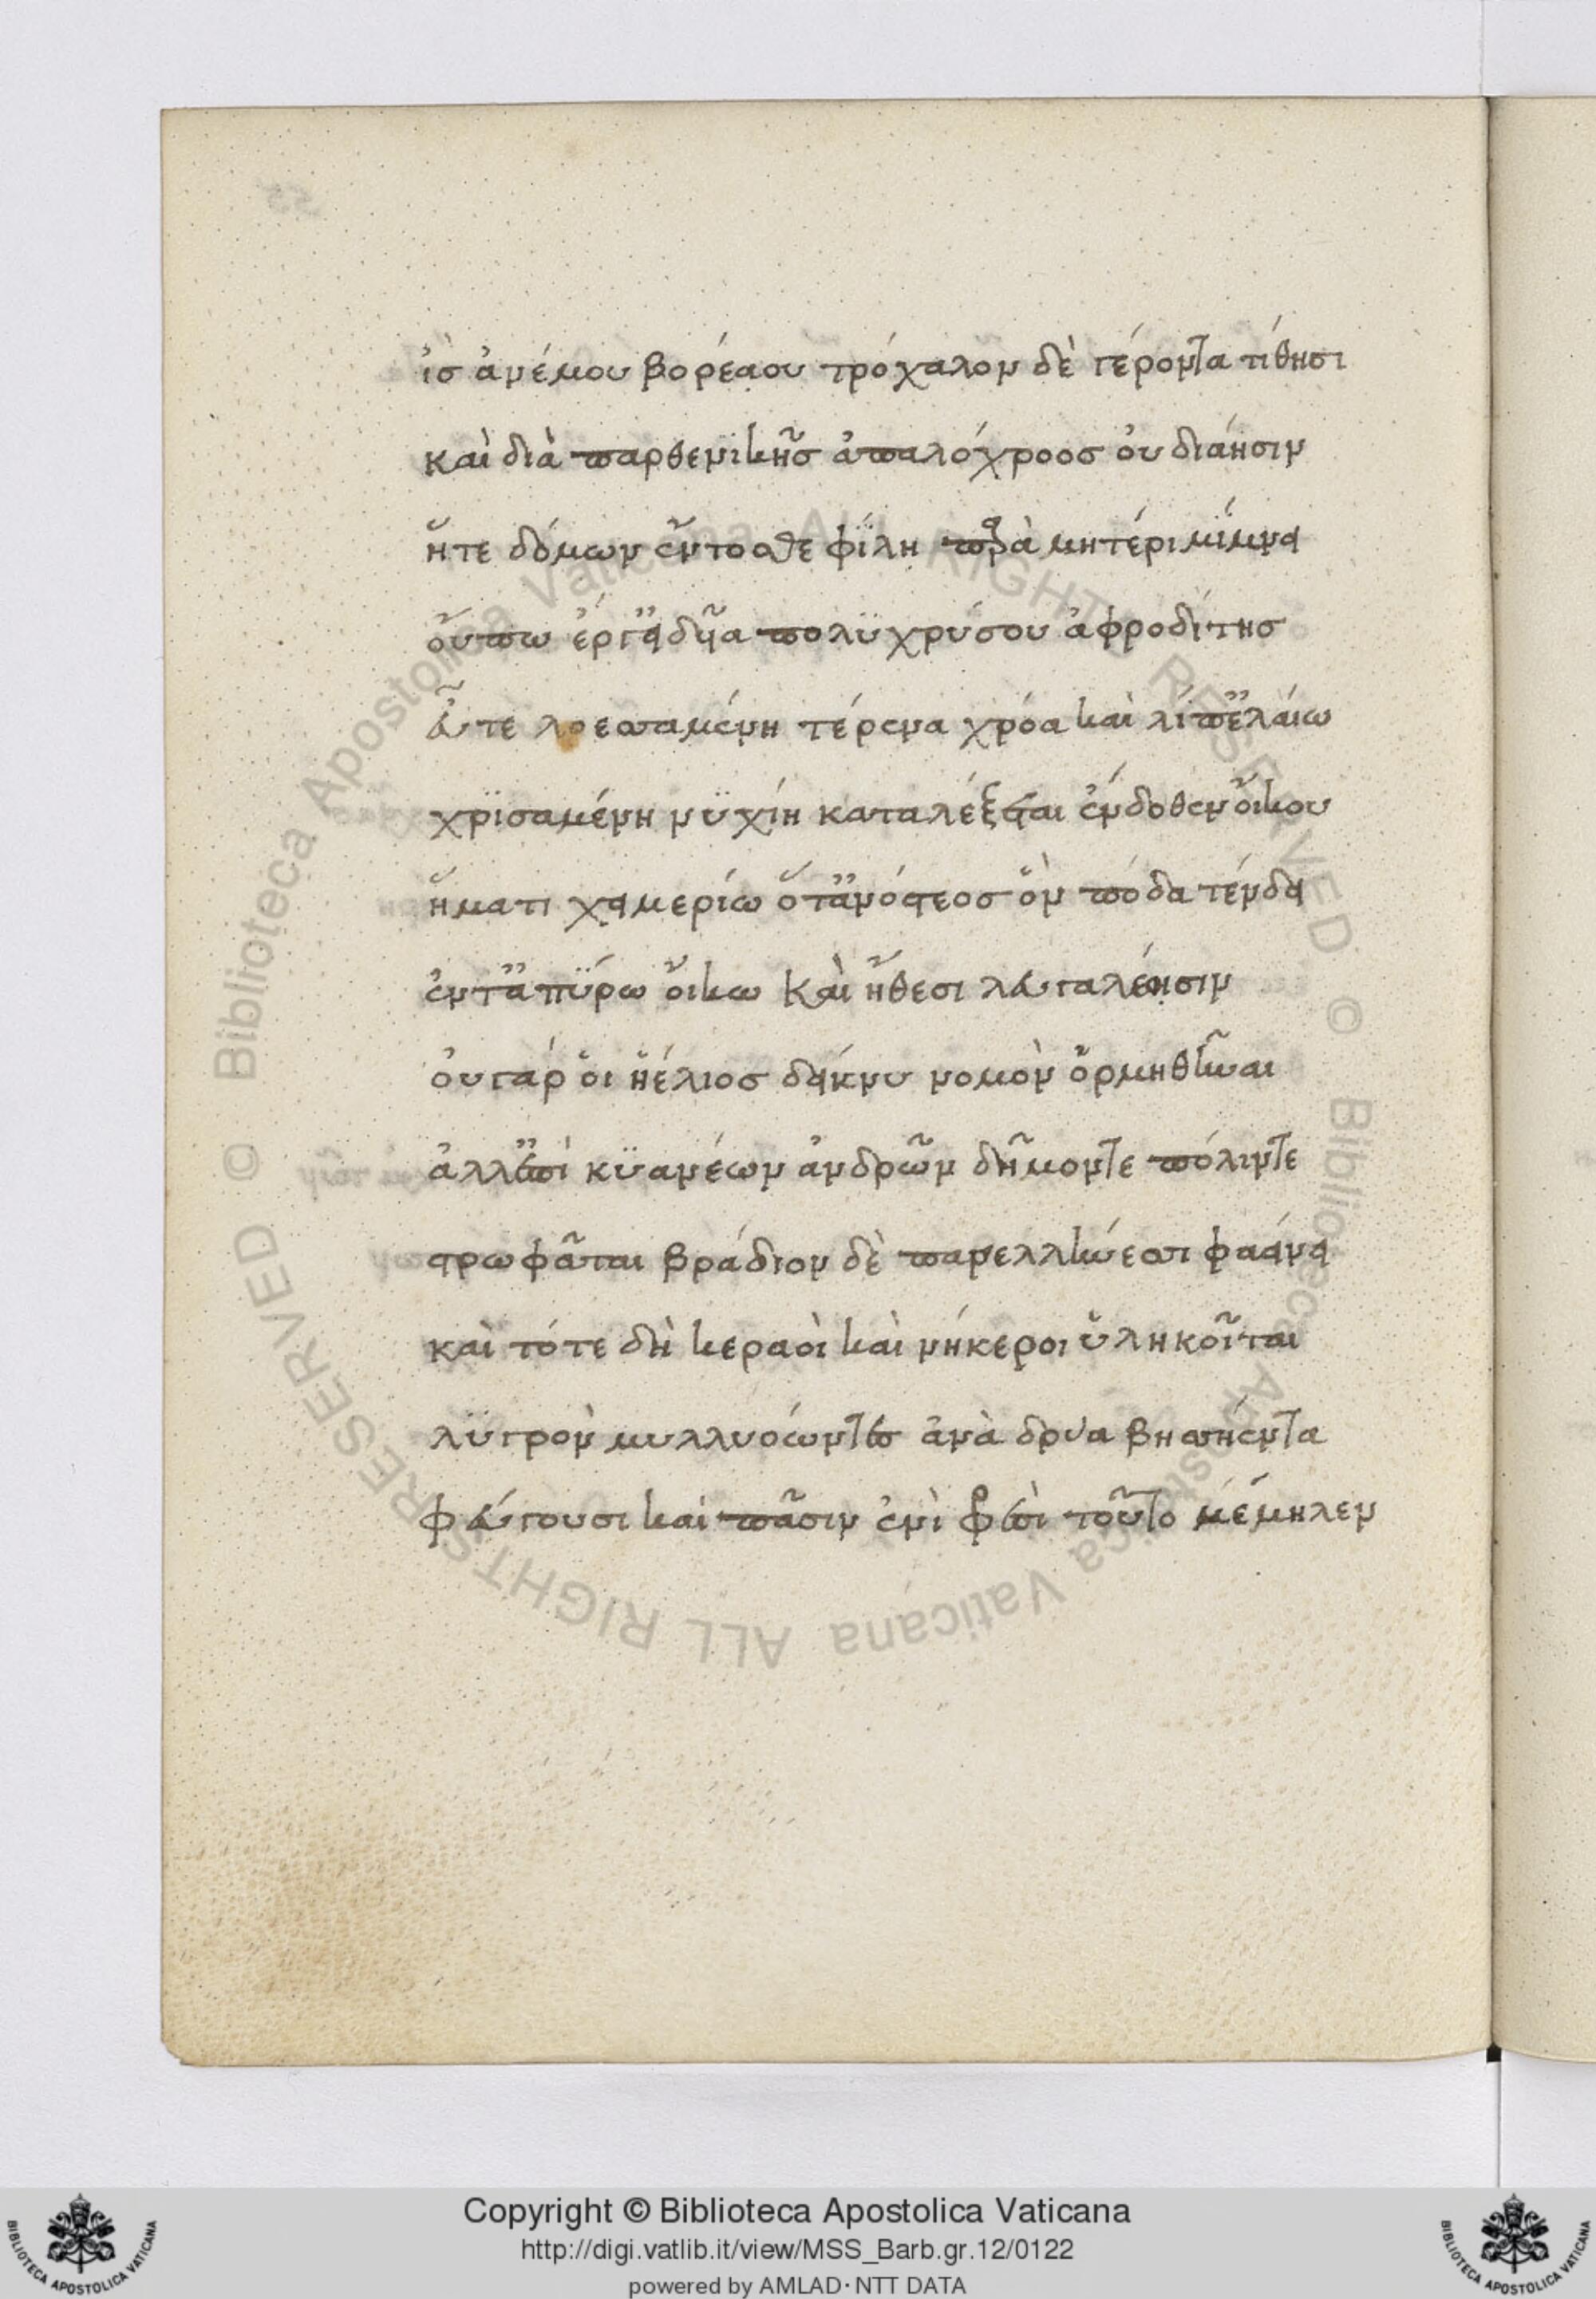 ἲς ἀνέμου βορέαου τρόχαλον δὲ γέροντα τίθησι
καὶ διὰ παρθενικῆς ἁπαλόχροος οὐ διάησιν
ἥτε δόμων ἔντοσθε φίλη παρὰ μητέρι μίμνει
οὔπω ἔργ' εἰδυῖα πολϋχρύσου ἀφροδίτης
εὖτε λοεσσαμένη τέρενα χρόα καὶ λίπ' ἐλάιω
χρϊσαμένη νϋχίη καταλέξεται ἔνδοθεν οἴκου
ἤματι χειμερίω ὅτ' ἀνόστεος ὃν πόδα τένδει
ἔν τ' ἀπΰρω οἴκω Καὶ ἤθεσι λευγαλέησιν
οὐ γάρ οἱ ἠέλιος δείκνυ νομὸν ὁρμηθῆναι
ἀλλ' ἐπὶ κϋανέων ἀνδρῶν δῆμόν τε πόλιν τε
στρωφᾶται βράδιον δὲ πανελλήνεσσι φαείνει
καὶ τότε δὴ κεραοὶ καὶ νήκεροι ὑληκοῖται
λϋγρὸν μυλλυόωντες ἀνὰ δρύα βησσήεντα
φεύγουσι καὶ πᾶσιν ἐνὶ φρεσὶ τοῦτο μέμηλεν
Copyright © Biblioteca Apostolica Vaticana
http://digi.vatlib.it/view/MSS_Barb.gr.12/0122
powered by AMLAD·NTT DATA